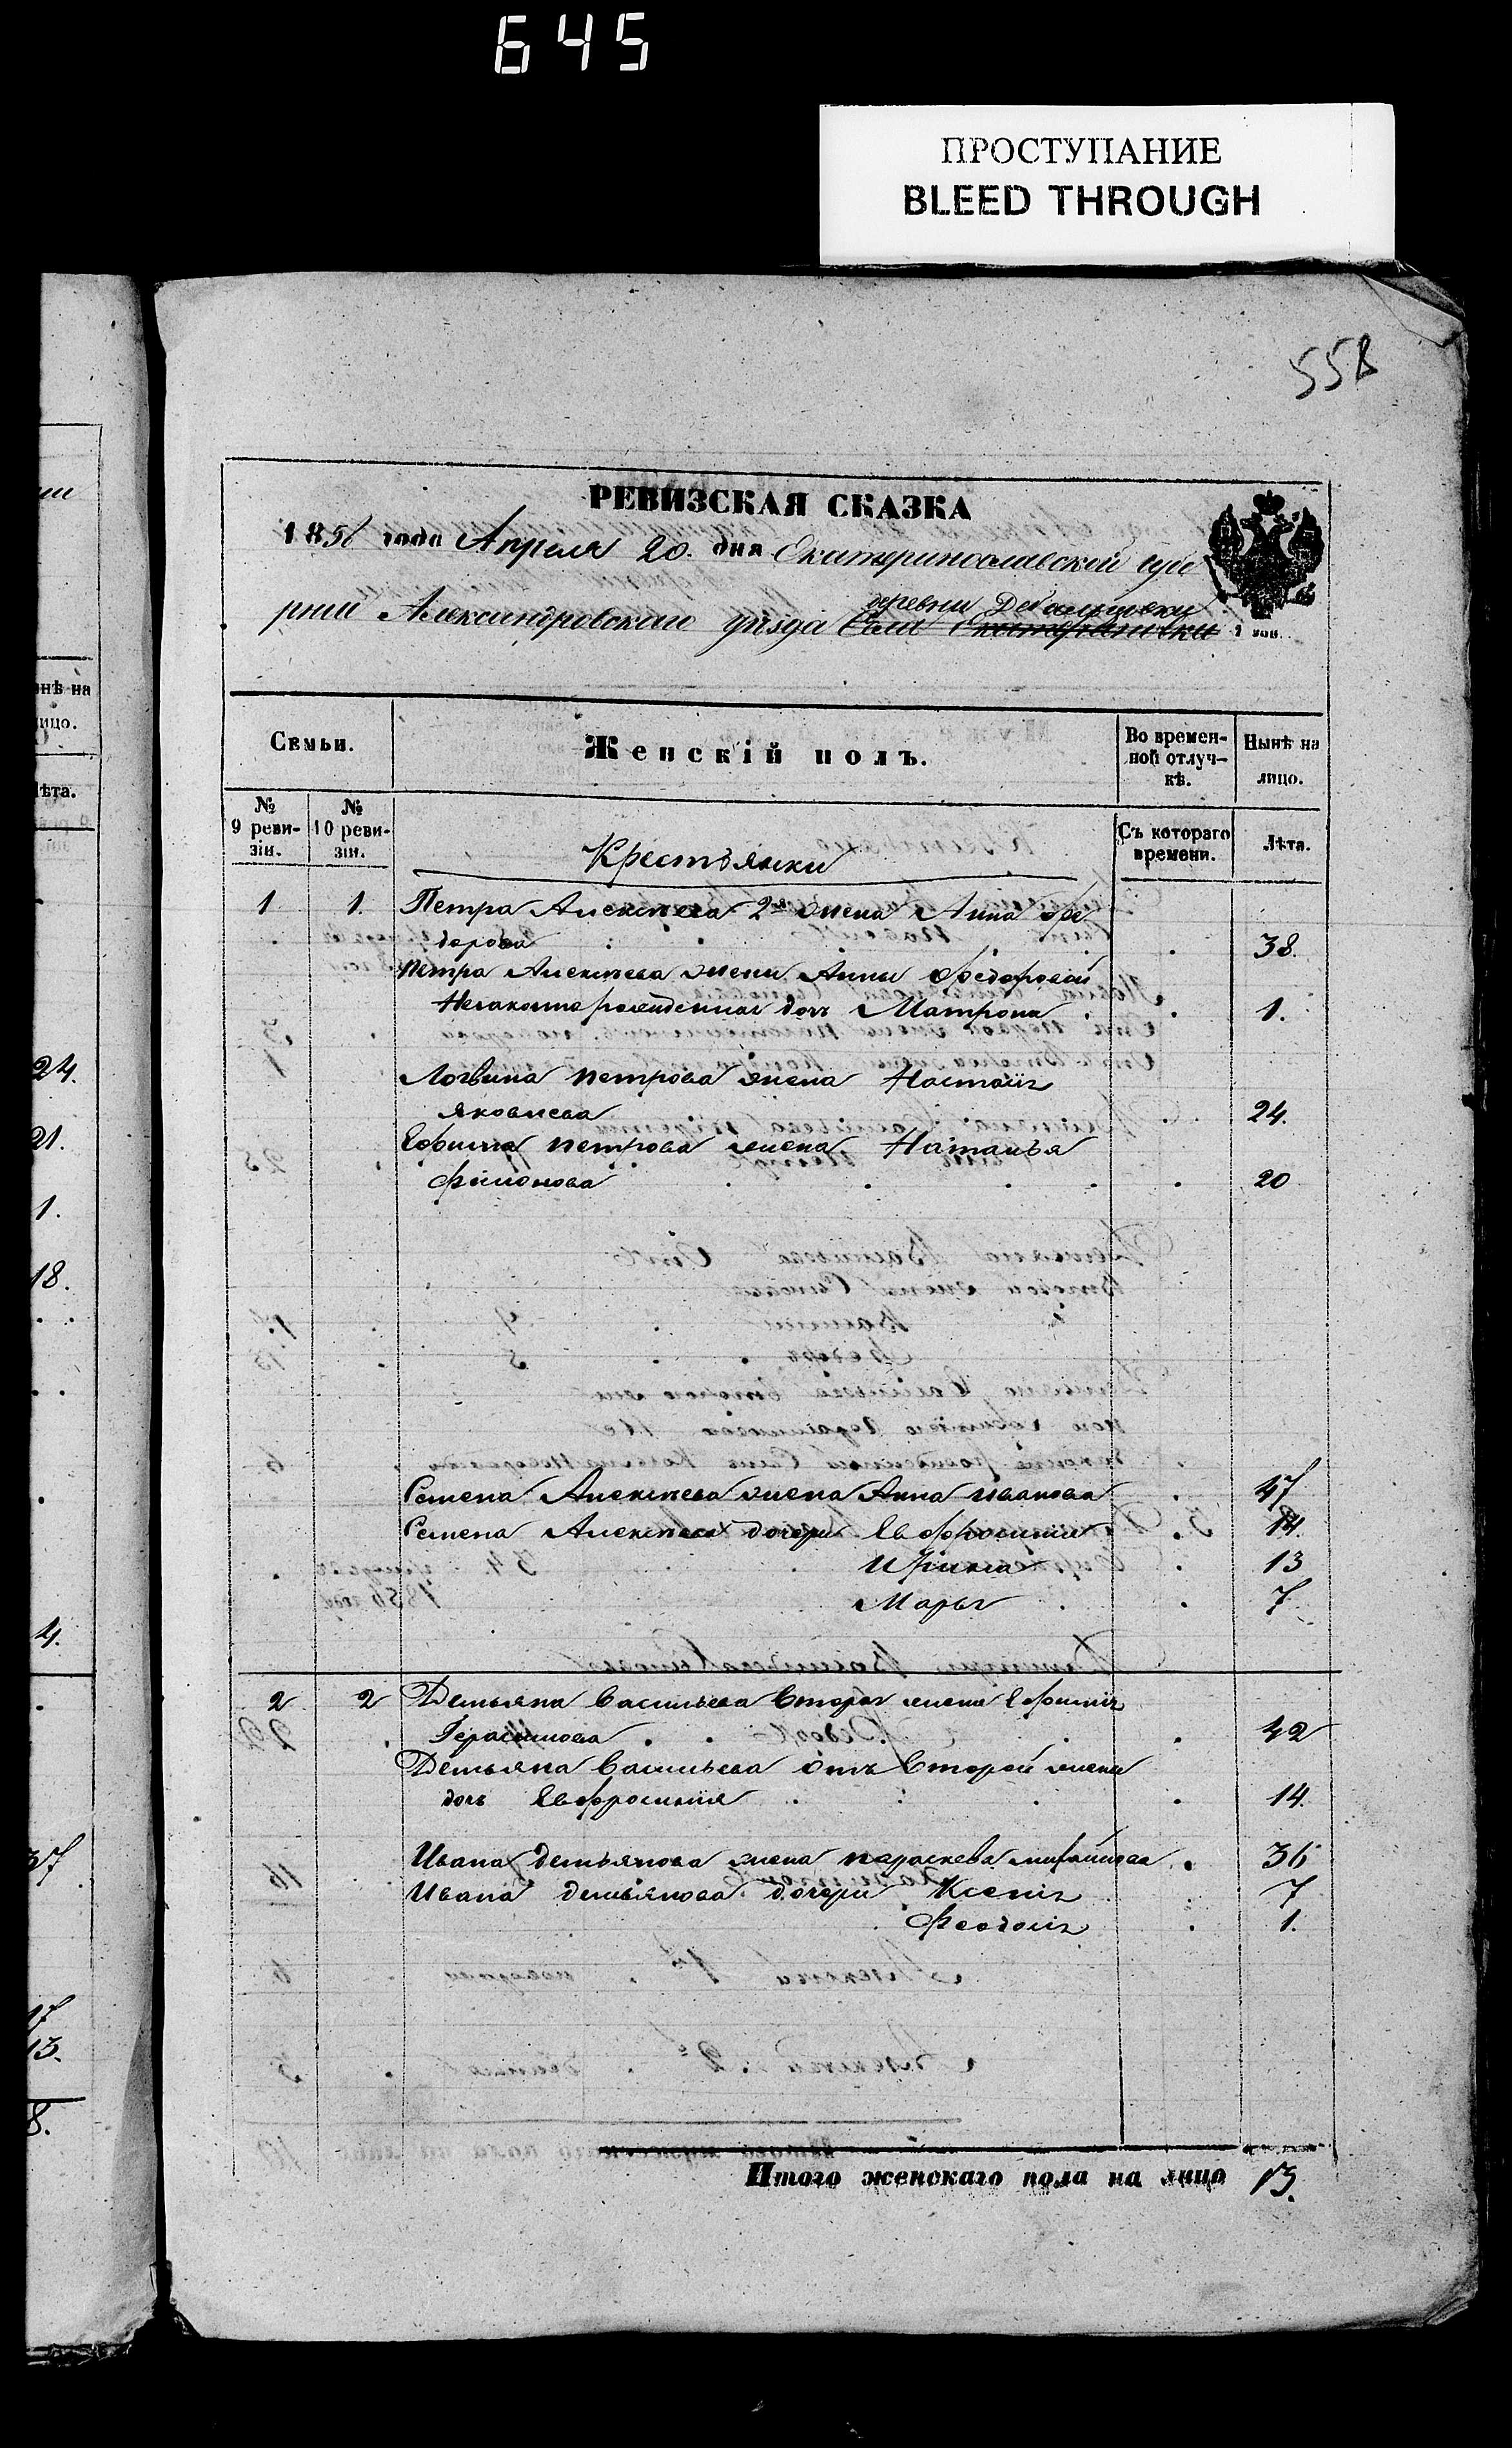 645
ПРОСТУПАНИЕ
BLEED THROUGH
558
РЕВИЗСКАЯ СКАЗКА
1856 года Апреля 20. дня Екатеринославской губе
рніи Александровскаго уѣзда Села
деревни
Семьи.
Женскій полъ.
Во времен-
ной отлуч-
кѣ.
Нынѣ на
лицо.
№
9 реви-
зіи.
№
10 реви-
зіи.
Съ котораго
времени.
Лѣта.
Крестьянки
1 1. Петра Алексѣева 2я жена Анна Фе
дорова 38.
Петра Алексѣева жены Анны Федоровой
Незаконно рожденная дочь Матрона 1.
Логвина Петрова жена Настасія
Яковлева 24.
Ефима Петрова жена Наталья
Филонова 20
Семена Алексѣева жена Анна Иванова 47
Семена Алексѣева дочери Евфросинія 14.
Ирина 13
Марья 7
2 2 Демьяна Васильева Вторая жена Ефимія
Герасимова 42
Демьяна Васильева отъ Второй жены
дочь Евфросинія 14.
Ивана Демьянова жена Параскева Михайлова 36
Ивана Демьянова дочери Ксенія 7
Феодосія 1.
Итого женскаго пола на лицо 13.
нѣ на
ицо.
ѣта.
24.
21.
1.
18.
4.
37
17
13.
8.